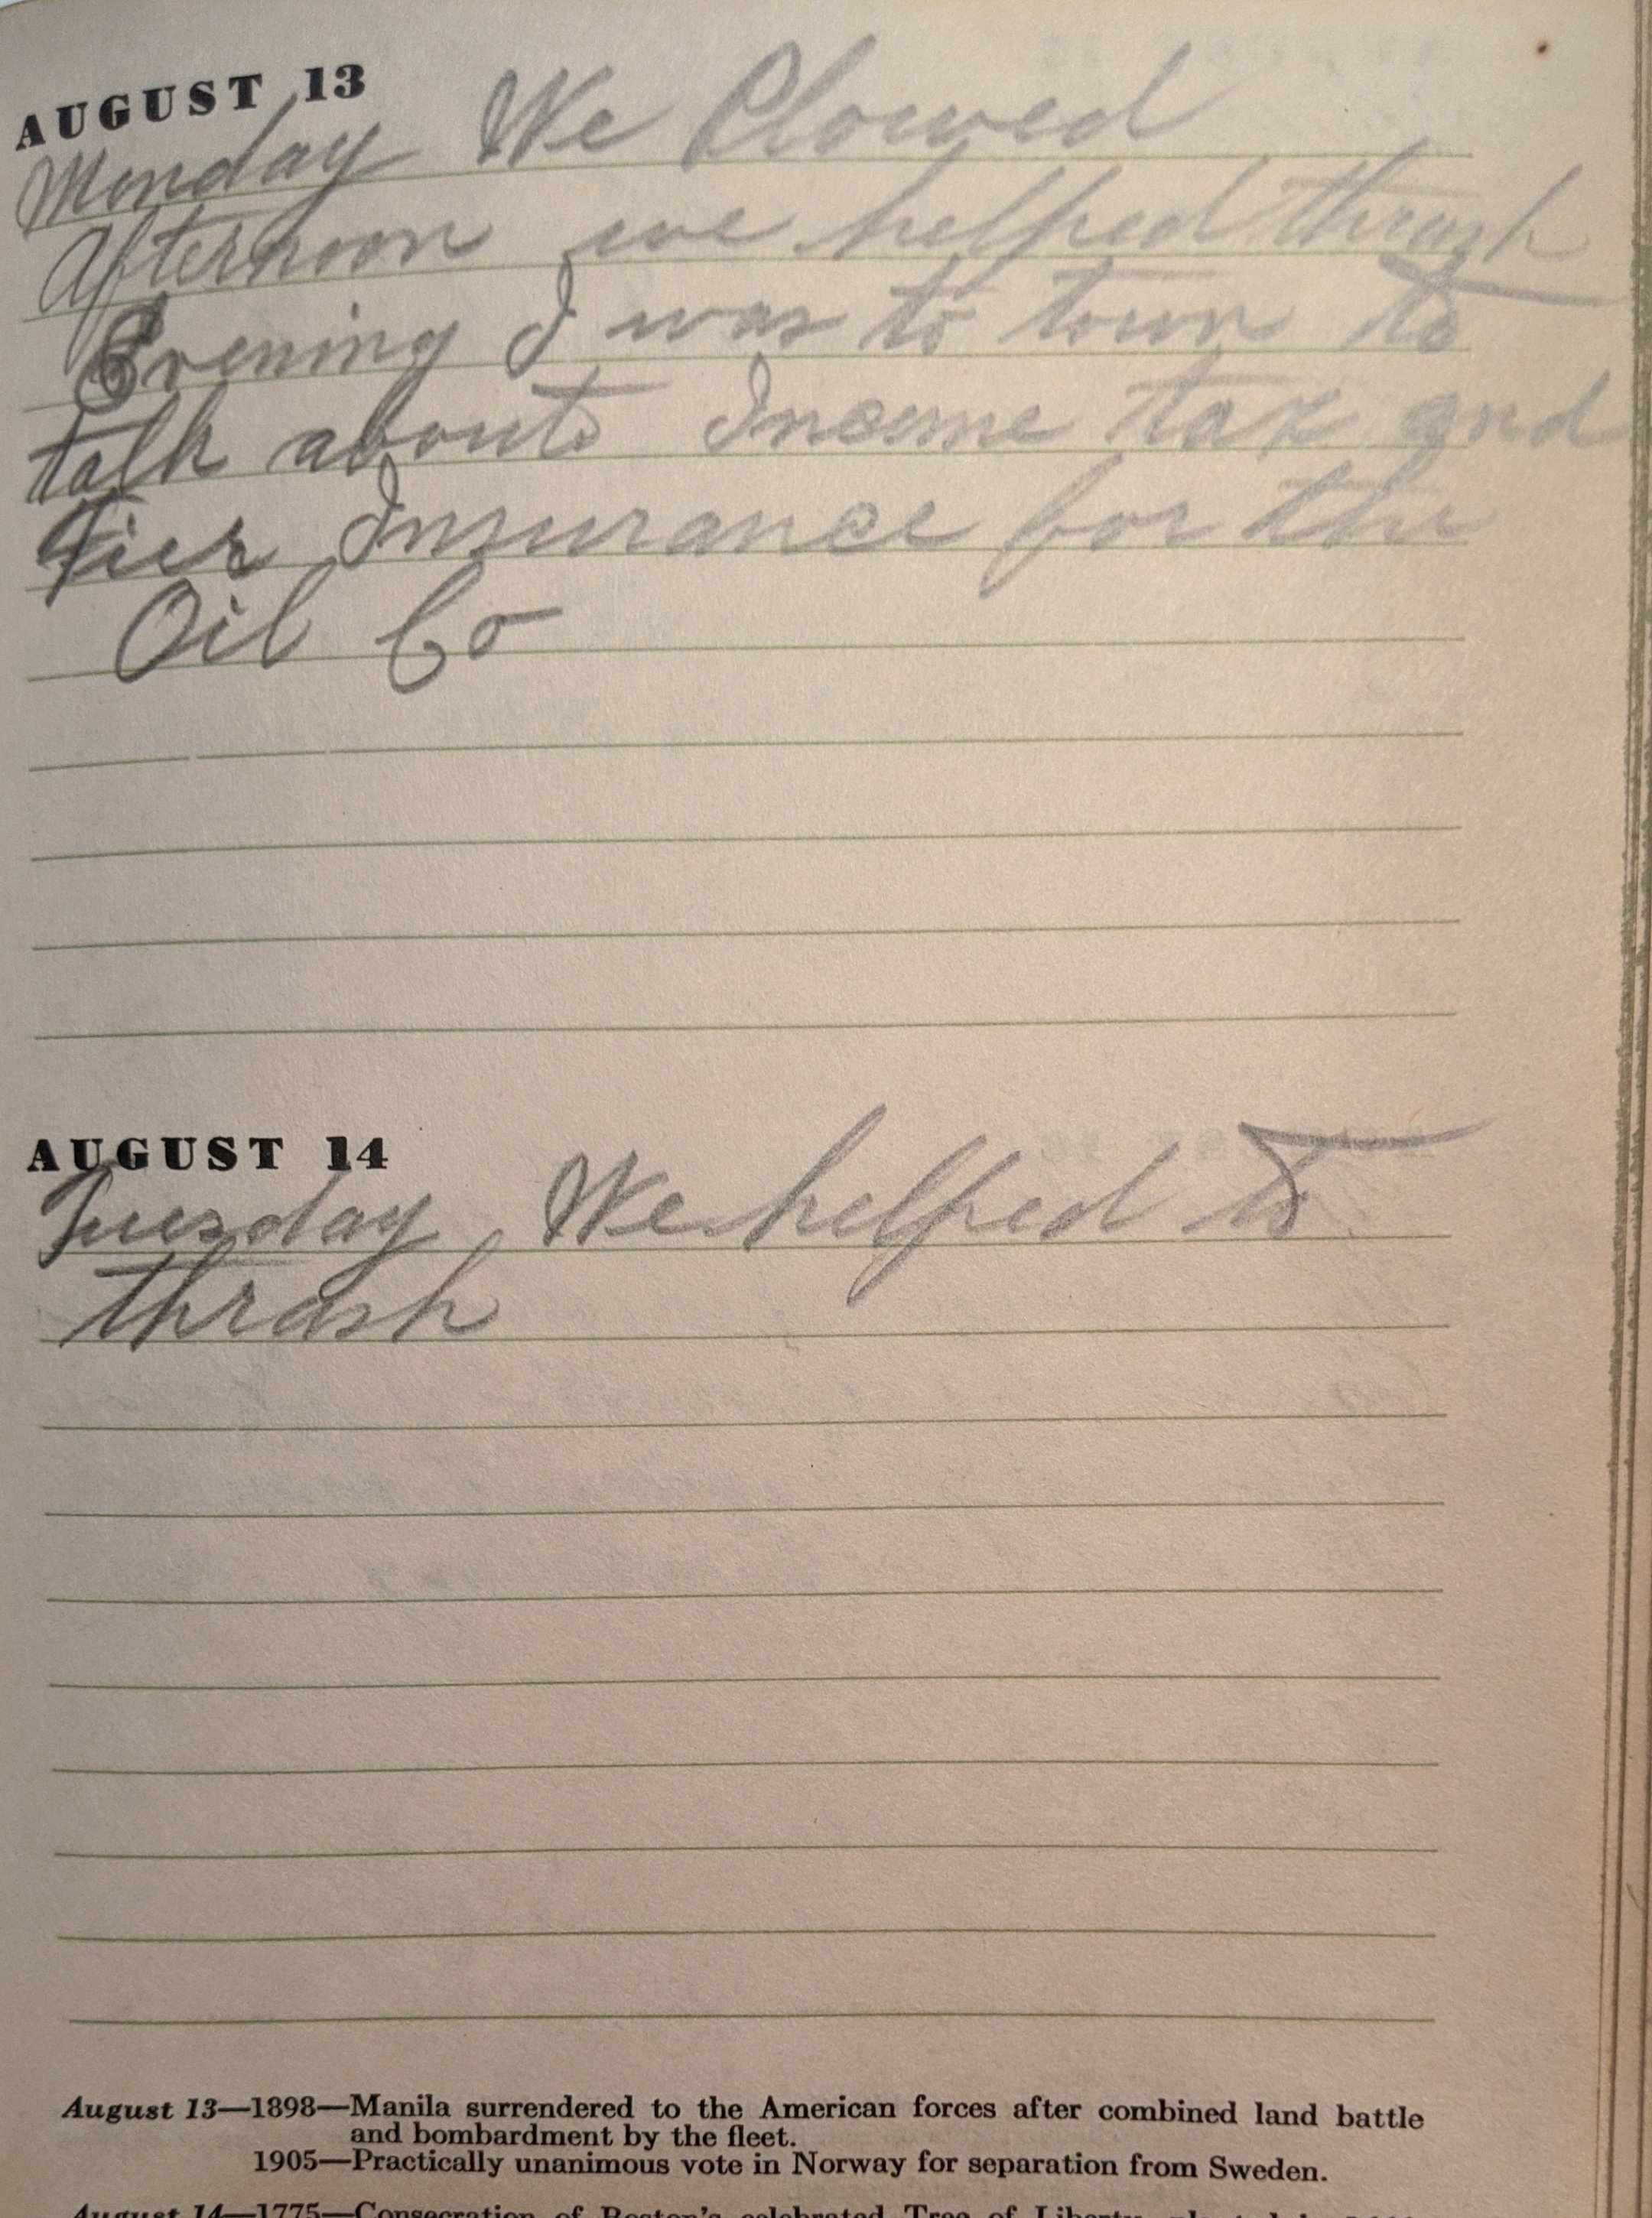 AUGUST 13
Monday We Plowed
Afternoon we helped thrash
Evening I was to town to
talk about Income tax and
Fier Insurance for the
Oil Co
AUGUST 14
Tuesday We helped to
thrash
August 13—1898—Manila surrendered to the American forces after combined land battle
and bombardment by the fleet.
1905—Practically unanimous vote in Norway for separation from Sweden.
August 14—1775—Consecration of Boston's celebrated Tree of Liberty,